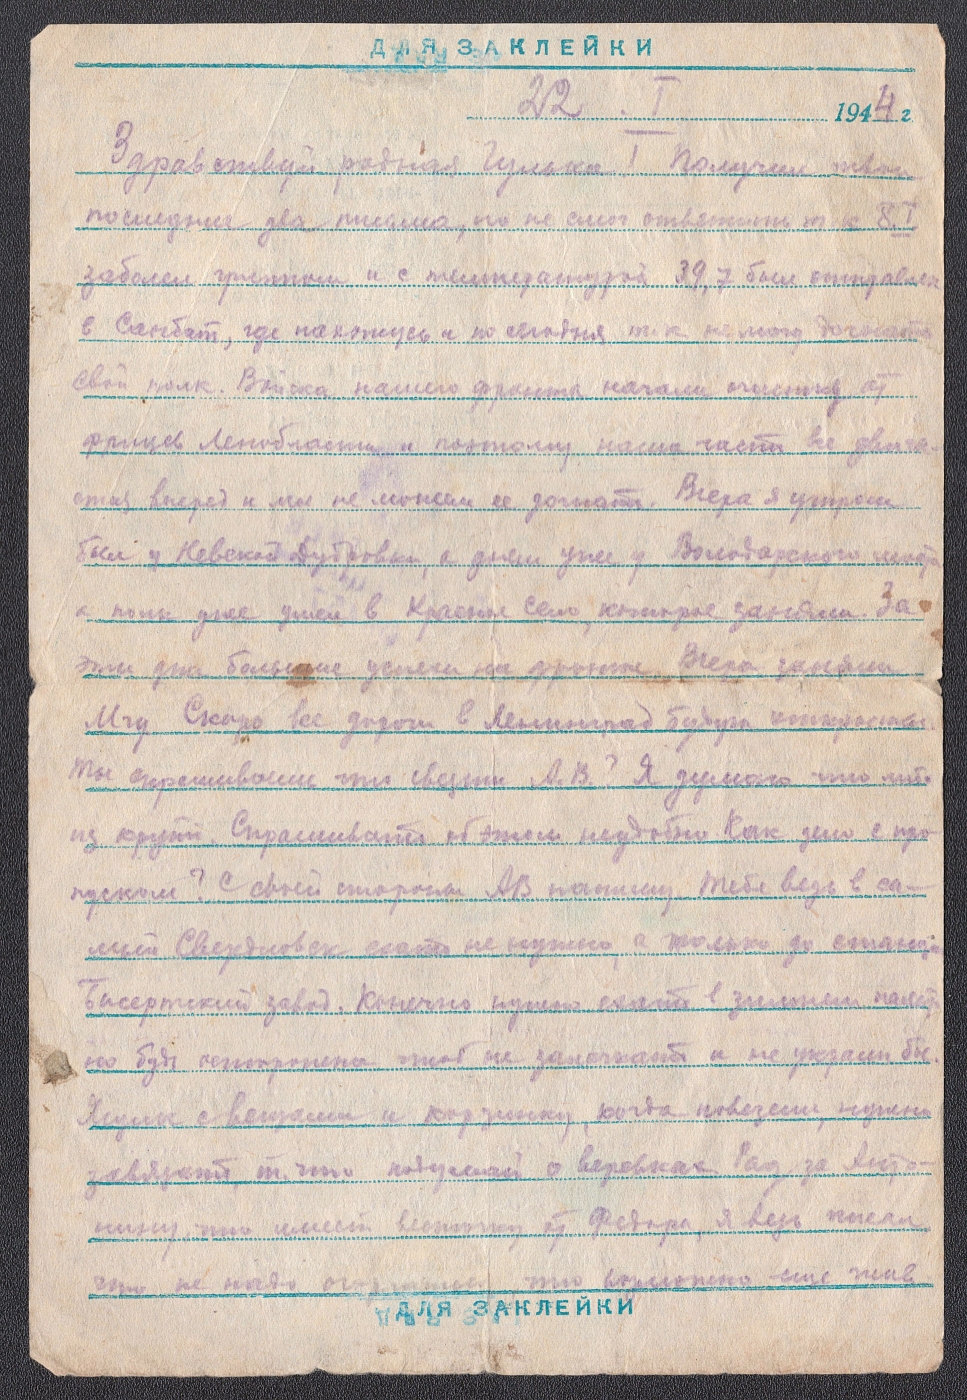 ДЛЯ ЗАКЛЕЙКИ
22 . I 1944 г.
Здравствуй родная Гулька! Получил твои
последние два письма, но не смог ответить т к 8.I
заболел гриппом и с температурой 39,7 был отправлен
в Санбат, где нахожусь и по сегодня т.к не могу догнать
свой полк. Войска нашего фронта начали очистку от
фрицев Ленобласти и поэтому наша часть все двига-
ется вперед и мы не можем ее догнать. Вчера я утром
был у Невской Дубровки, а днем уже у Володарского моста
а полк уже ушел в Красное Село, которое заняли. За
эти дни большие успехи на фронте. Вчера заняли
Мгу Скоро все дороги в Ленинград будут открыты.
Ты спрашиваешь что с А.В.? Я думаю что
из крупы. Спрашивать об этом неудобно Как дело с про-
пуском? С своей стороны АВ напишу. Тебе ведь в са-
мый Свердловск ехать не нужно, а только до станции
Бисертский завод. Конечно нужно ехать в зимнем пальто
но будь осторожна чтоб не запачкать и не украли бы.
Ящик с вещами и корзинку, когда повезешь, нужно
завязать, т. что подумай о веревках. Рад за
что имеет весточку от Федора, я ведь писал
что не надо что возможно еще жив
ДЛЯ ЗАКЛЕЙКИ